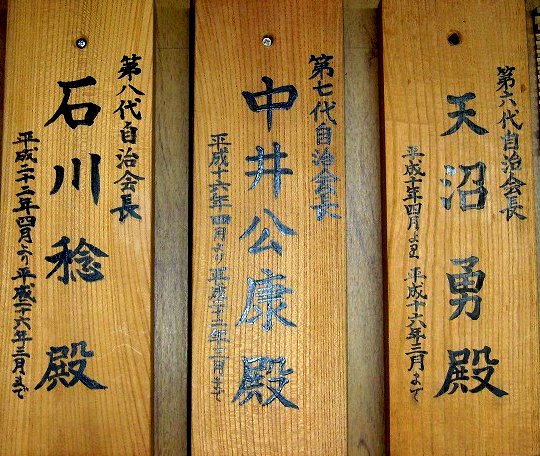 第六代自治会長
天沼勇殿
平成十年四月より 平成十六年三月まで
第七代自治会長
中井公康殿
平成十六年四月より 平成二十二年三月まで
第八代自治会長
石川稔殿
平成二十二年四月より 平成二十六年三月まで